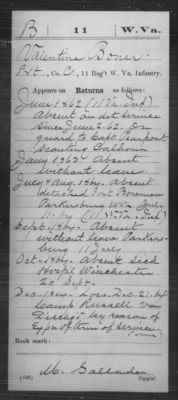 B 11 W. Va.
Valentine Boner
Pvt., Co. C, 11 Reg't W. Va. Infantry.
Appears on Returns as follows:
June 1862 (11 Va. Inf)
Absent on det service
since June 2. 62. On
guard to Capt
Scouting Calhoun
Jany 1863. Absent
without leave
July 1864. Absent
detached Fort Boreman
Parkersburg W Va July
11. by (11 W. Va. Inf)
Sept. 1864. Absent
without leave Parkers-
burg 11 July
Oct. 1864. Absent sick
Hosp'l Winchester
20 Sept.
Dec. 1864. Loss. Dec. 21.
Camp Russell Va
Disch'd by reason of
Exp'n of term of service
Book mark:
(546) Copyist.